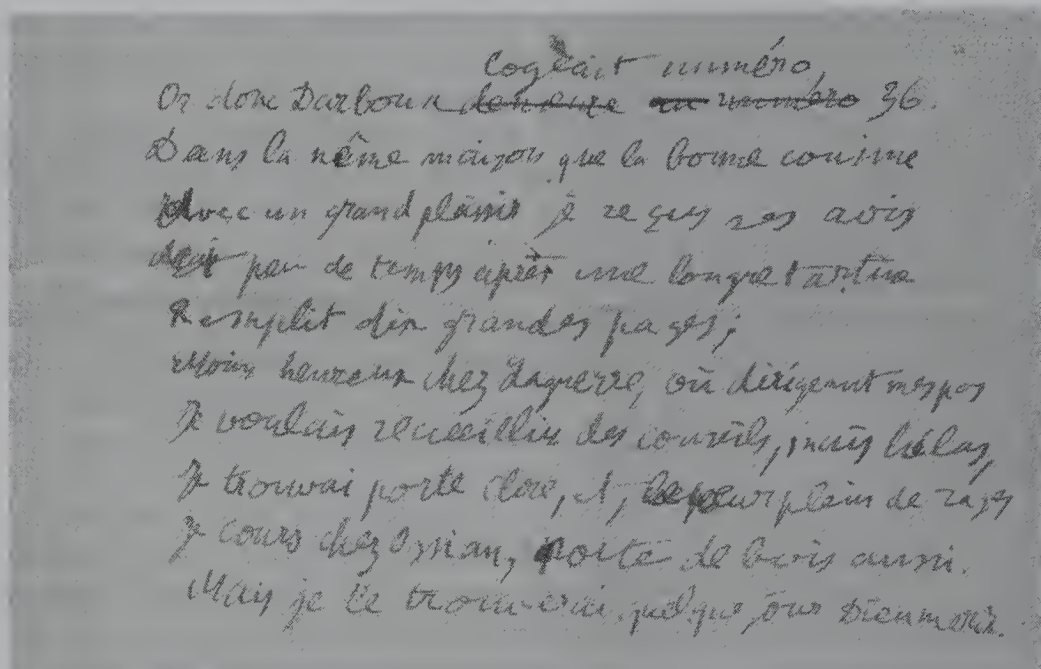 logeait numéro,
Or donc Darboux demeure au numéro 36.
Dans la même maison que la bonne cousine
Avec un grand plaisir je reçus ses avis
peu de temps après une longue tartine
Remplit dix grandes pages;
Moins heureux chez Laguerre, où dirigeant mes pas
Je voulais recueillir des conseils, mais hélas,
Je trouvai porte close, et, le cœur plein de rage
Je cours chez Ossian, porte de bois aussi.
Mais je le trouverai quelque jour Dieu merci.